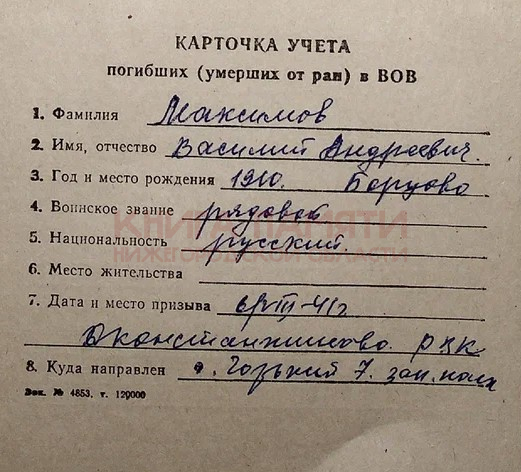 КАРТОЧКА УЧЕТА
погибших (умерших от ран) в ВОВ
1. Фамилия Максимов
2. Имя, отчество Василий Андреевич.
3. Год и место рождения 1910. Борцово
4. Воинское звание рядовой
5. Национальность русский.
КНИГА ПАМЯТИ
НИЖЕГОРОДСКОЙ ОБЛАСТИ
6. Место жительства
7. Дата и место призыва
Д Константиново РВК
8. Куда направлен г. Горький 7. зап. полк
Зак. № 4853. т. 120000